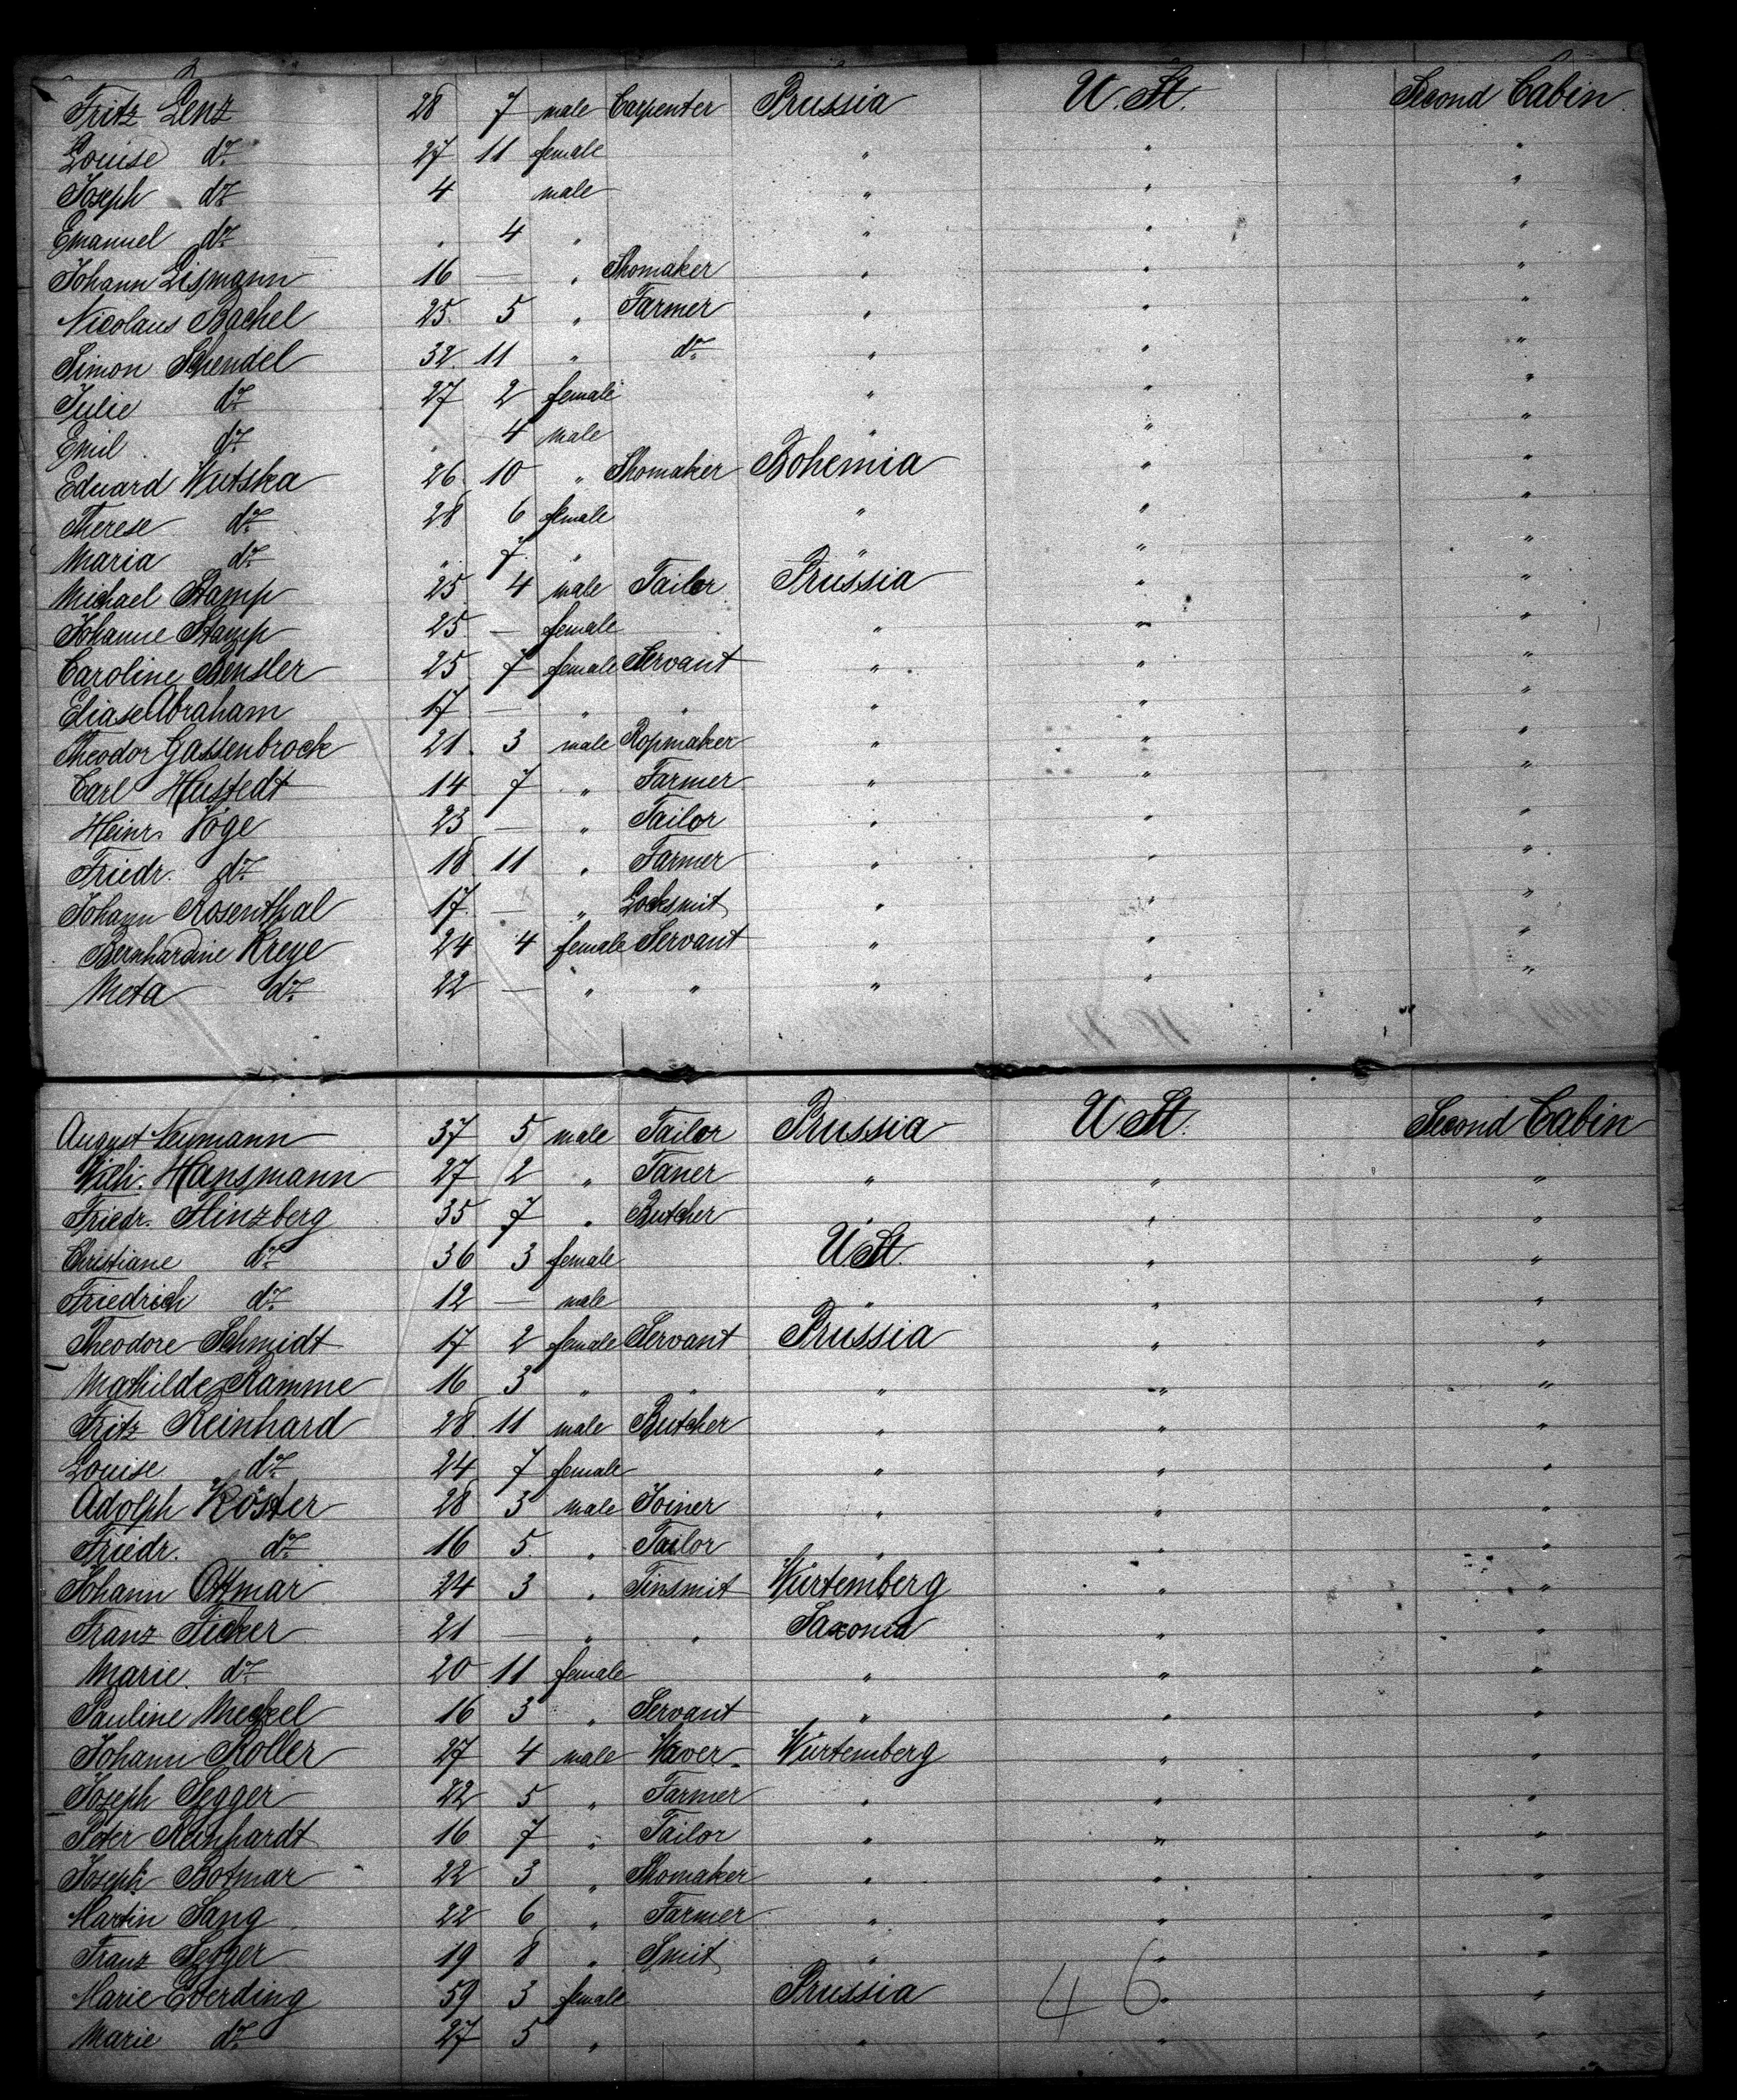 Fritz Lenz 28 7 male Carpenter Prussia U. St. Second Cabin
Louise do 27 11 female " " "
Joseph do 4 male " " "
Emanuel do " 4 " " " "
Johann Lismann 16 — " Shomaker " " "
Nicolaus Bachel 25 5 " Farmer " " "
Simon Schendel 32 11 " do " " "
Julie do 27 2 female " " "
Emil do " 4 male " " "
Eduard Wutska 26 10 " Shomaker Bohemia " "
Therese do 28 6 female " " "
Maria do " 7 " " " "
Michael Stamp 25 4 male Tailor Prussia " "
Johanne Stamp 25 — female " " "
Caroline Bensler 25 7 female Servant " " "
Eliase Abraham 17 — " " " " "
Theodor Gassenbrock 21 3 male Ropmaker " " "
Carl Hustedt 14 7 " Farmer " " "
Heinr. Voge 23 — " Tailor " " "
Friedr. do 18 11 " Farmer " " "
Johann Rosenthal 17 — " Locksmit " " "
Bernhardine Kreye 24 4 female Servant " " "
Meta do 22 — " " " " "
August Neumann 37 5 male Tailor Prussia U St. Second Cabin
Wilh. Hansmann 27 2 " Taner " " "
Friedr. Hinzberg 35 7 " Butcher " " "
Christiane do 36 3 female U. St. " "
Friedrich do 12 — male " " "
Theodore Schmidt 17 2 female Servant Prussia " "
Mathilde Ramme 16 3 " " " " "
Fritz Reinhard 28 11 male Butcher " " "
Louise do 24 7 female " " "
Adolph Köster 28 3 male Joiner " " "
Friedr. do 16 5 " Tailor " " "
Johann Ottmar 24 3 " Tinsmit Würtemberg " "
Franz Ficker 21 — " " Saxonia " "
Marie do 20 11 female " " "
Pauline Meckel 16 3 " Servant " " "
Johann Roller 27 4 male Waver Würtemberg " "
Joseph Segger 22 5 " Farmer " " "
Peter Reinhardt 16 7 " Tailor " " "
Joseph Botmar 22 3 " Shomaker " " "
Martin Sang 22 6 " Farmer " " "
Franz Segger 19 8 " Smit " " "
Marie Everding 59 3 female Prussia 46 " "
Marie do 27 5 " " " "